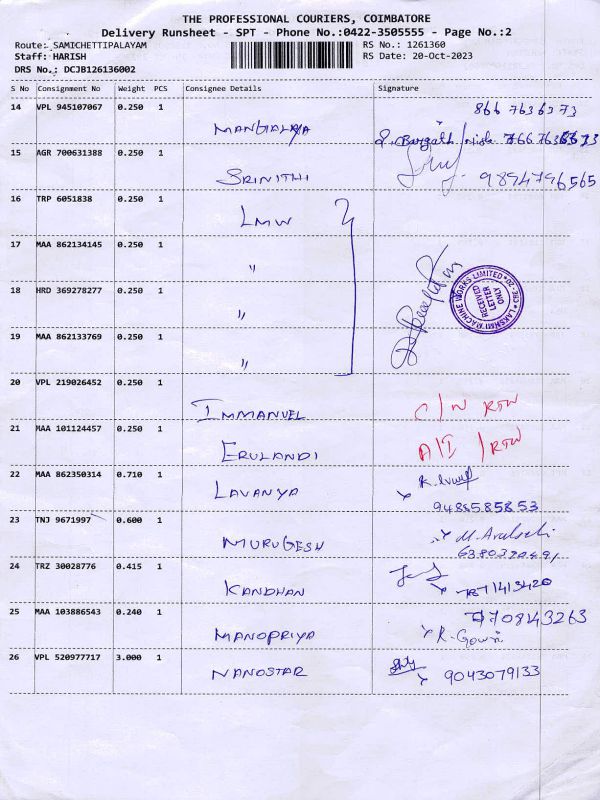 THE PROFESSIONAL COURIERS, COIMBATORE
Delivery Runsheet - SPT - Phone No.:0422-3505555 - Page No.:2
Route: SAMICHETTIPALAYAM RS No.: 1261360
Staff: HARISH RS Date: 20-Oct-2023
DRS No.: DCJB126136002
S No Consignment No Weight PCS Consignee Details Signature
14 VPL 945107067 0.250 1 866 7636373
MANGALAYA 766 7636373
15 AGR 700631388 0.250 1
SRINITHI 9894796565
16 TRP 6051838 0.250 1 LMW
17 MAA 862134145 0.250 1 "
18 HRD 369278277 0.250 1 "
LAKSHMI MACHINE WORKS LIMITED
RECEIVED
LETTER
ONLY
19 MAA 862133769 0.250 1 "
20 VPL 219026452 0.250 1 IMMANUEL C/N RTW
21 MAA 101124457 0.250 1 ERULANDI A/I /RTW
22 MAA 862350314 0.710 1 LAVANYA
9488585853
23 TNJ 9671997 0.600 1 MURUGESH
24 TRZ 30028776 0.415 1 KANDHAN
25 MAA 103886543 0.240 1 7708143263
MANOPRIYA R. Gowri
26 VPL 520977717 3.000 1 NANOSTAR 9043079133